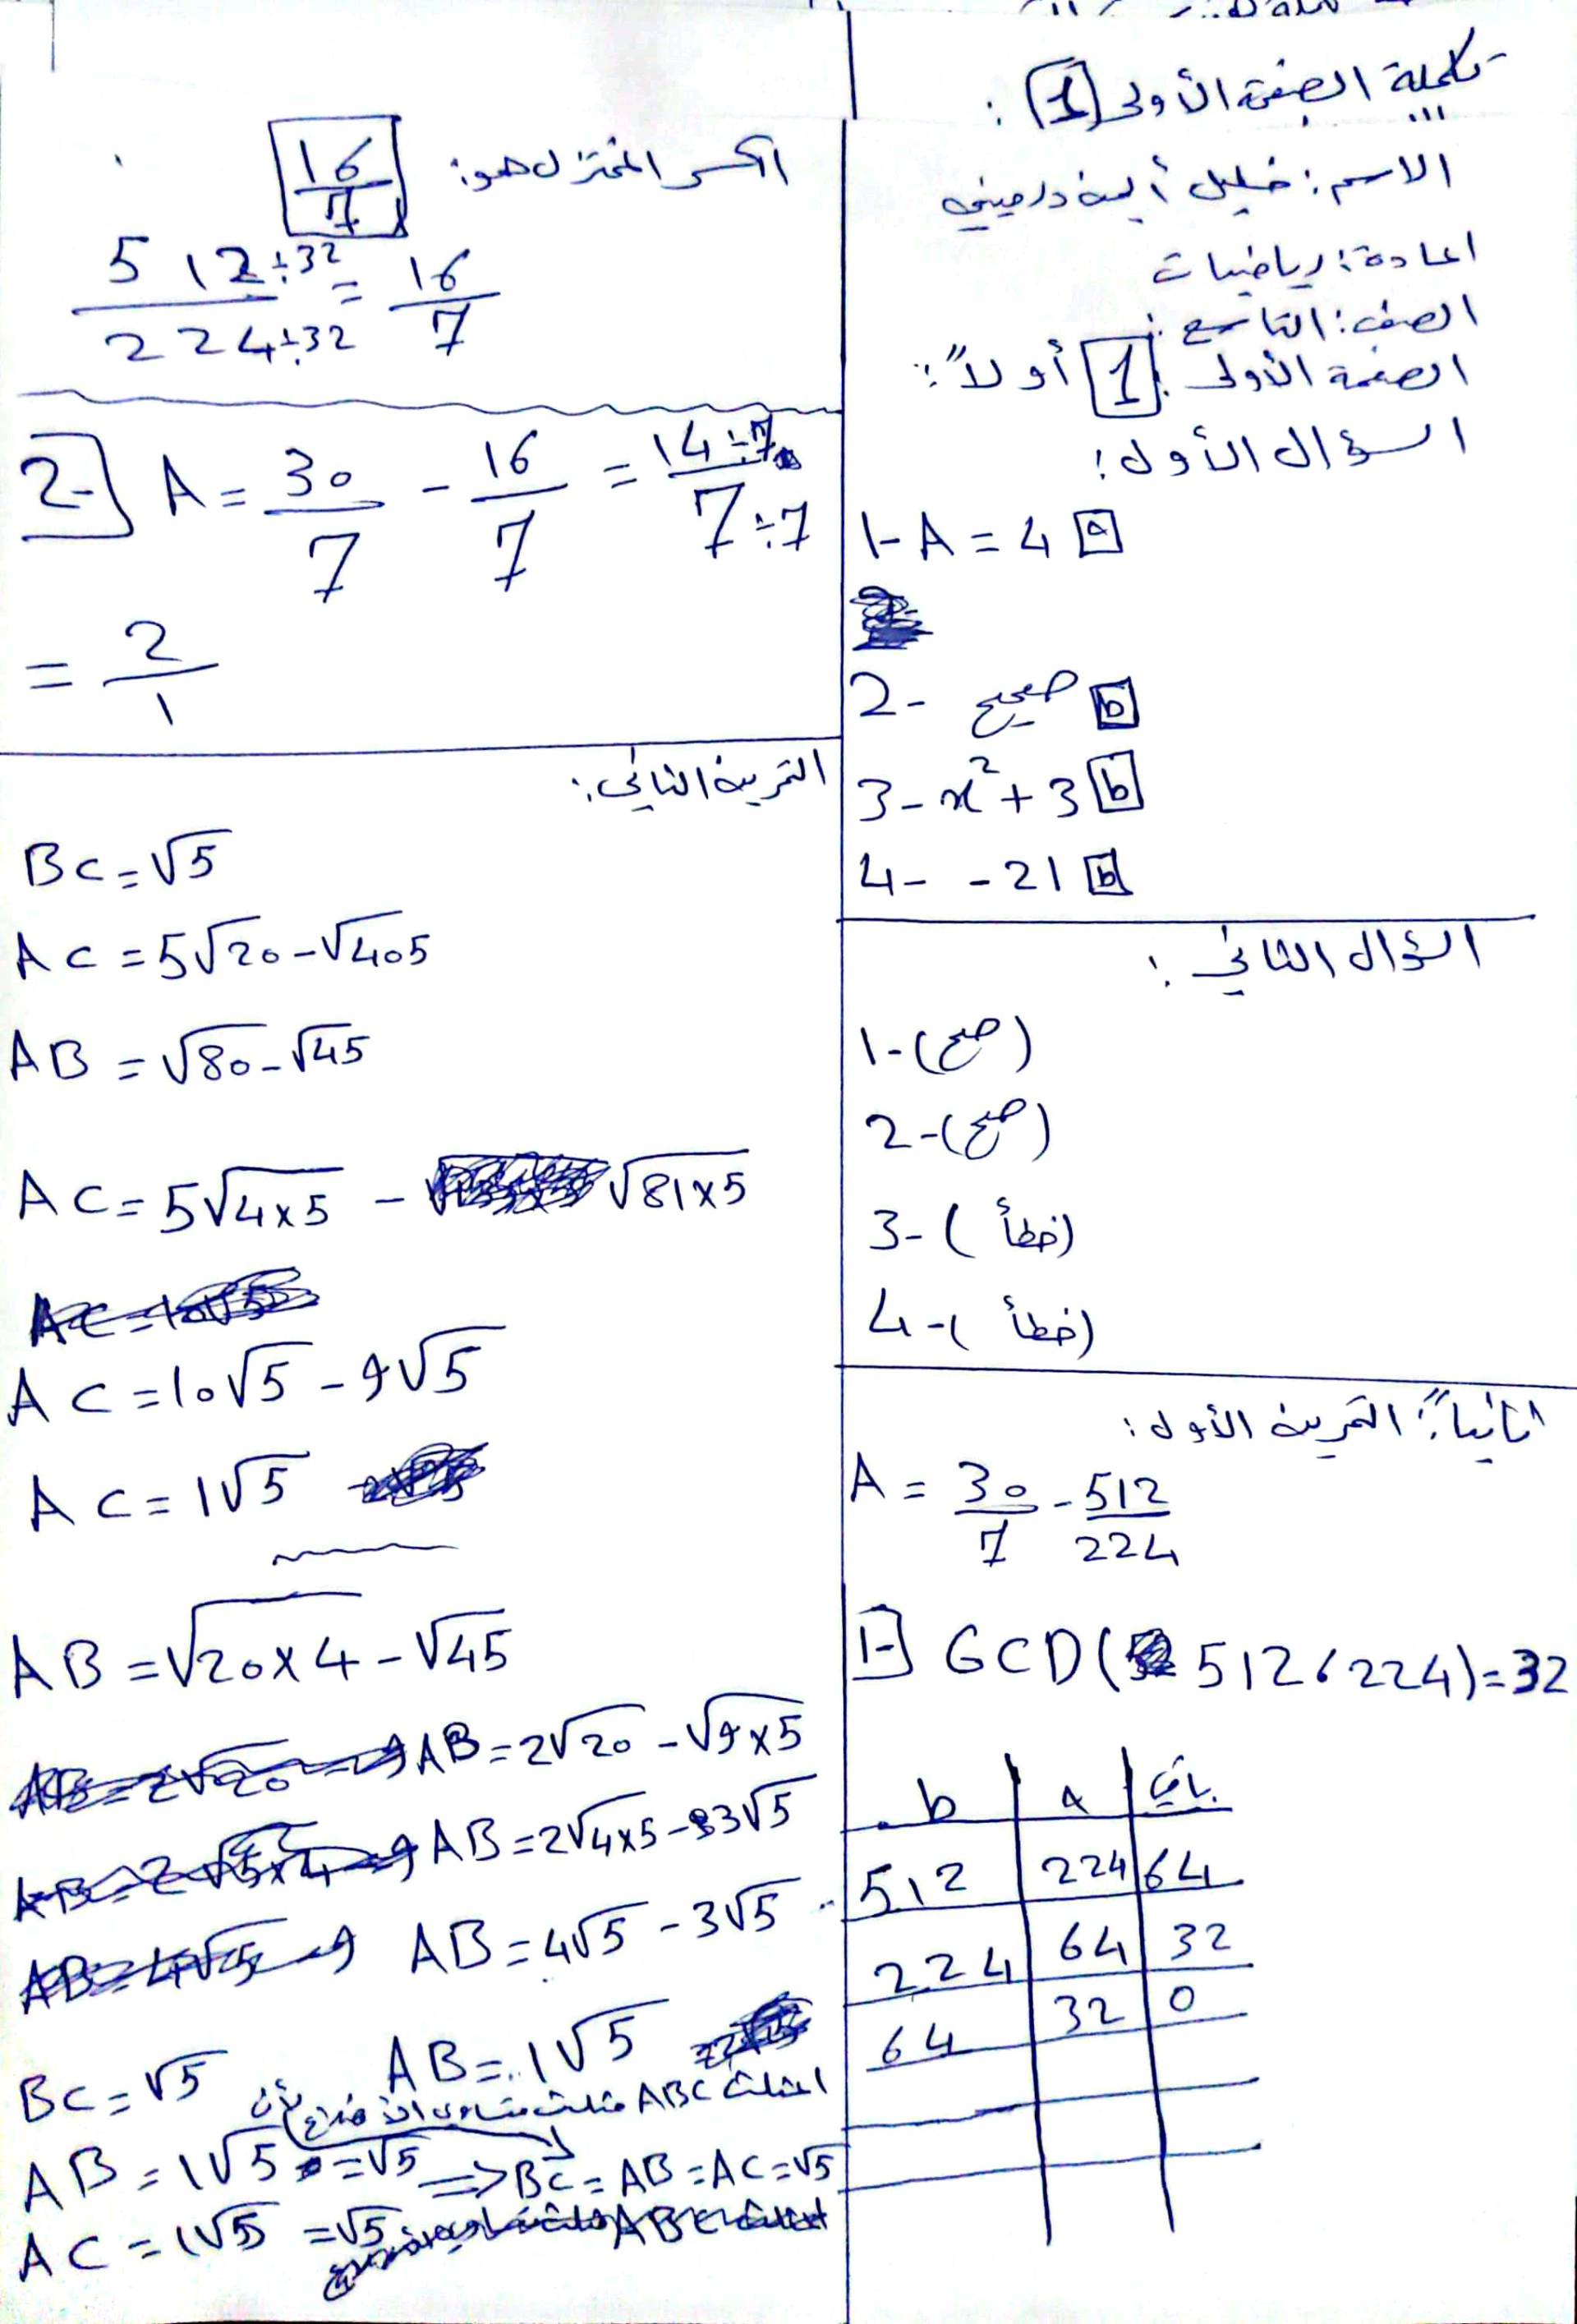 تكملة الصفحة الأولى [1]:
الاسم: خليل أيمن درميني
المادة: رياضيات
الصف: التاسع
الصفحة الأولى [1] أولاً:
السؤال الأول:
1- A = 4 [a]
2- صحيح [b]
3- x² + 3 [b]
4- -21 [b]
السؤال الثاني:
1- (صح)
2- (صح)
3- (خطأ)
4- (خطأ)
ثانياً: التمرين الأول:
A = 30/7 - 512/224
1- GCD(512, 224) = 32
b | a | باقي
512 | 224 | 64
224 | 64 | 32
64 | 32 | 0
الكسر المختزل هو: 16/7
512÷32 / 224÷32 = 16/7
2- A = 30/7 - 16/7 = 14÷7 / 7÷7
= 2/1
التمرين الثاني:
BC = √5
AC = 5√20 - √405
AB = √80 - √45
AC = 5√4×5 - √81×5
AC = 10√5 - 9√5
AC = 1√5
AB = √20×4 - √45
AB = 2√20 - √9×5
AB = 2√4×5 - 3√5
AB = 4√5 - 3√5
AB = 1√5
المثلث ABC مثلث متساوي الأضلاع لأن
BC = √5
AB = 1√5 = √5 => BC = AB = AC = √5
AC = 1√5 = √5